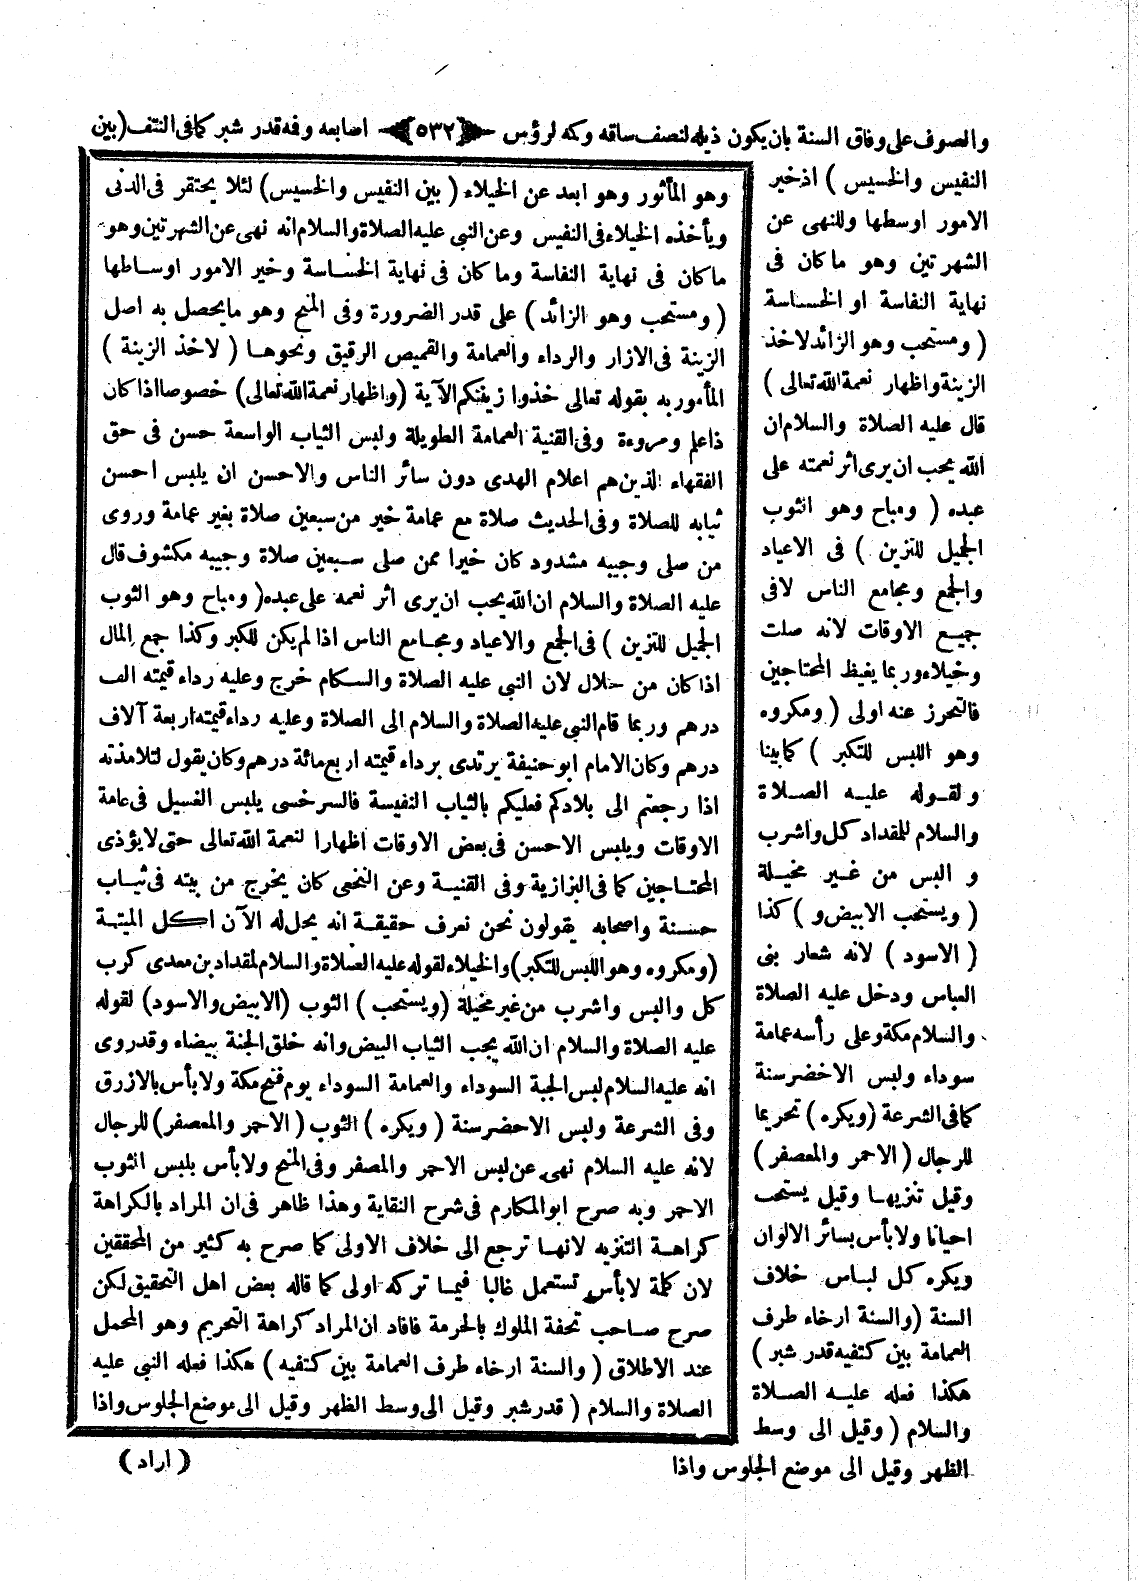 والصوف على وفاق السنة بان يكون ذيله لنصف ساقه وكمه لرؤس ﴿٥٣٢﴾ اصابعه وفه قدر شبر كما فى النتف (بين
النفيس والخسيس ) اذ خير
الامور اوسطها وللنهى عن
الشهرتين وهو ماكان فى
نهاية النفاسة او الخساسة
( ومستحب وهو الزائد لاخذ
الزينة واظهار نعمة الله تعالى )
قال عليه الصلاة والسلام ان
الله يحب ان يرى اثر نعمته على
عبده ( ومباح وهو الثوب
الجميل للتزين ) فى الاعياد
والجمع ومجامع الناس لافى
جميع الاوقات لانه صلت
وخيلاء وربما يغيظ المحتاجين
فالتحرز عنه اولى ( ومكروه
وهو اللبس للتكبر ) كما بينا
ولقوله عليه الصلاة
والسلام للمقداد كل واشرب
و البس من غير مخيلة
( ويستحب الابيض و ) كذا
( الاسود ) لانه شعار بنى
العباس ودخل عليه الصلاة
والسلام مكة وعلى رأسه عمامة
سوداء ولبس الاخضر سنة
كما فى الشرعة (ويكره ) تحريما
للرجال ( الاحمر والمعصفر )
وقيل تنزيها وقيل يستحب
احيانا ولا بأس بسائر الالوان
ويكره كل لباس خلاف
السنة (والسنة ارخاء طرف
العمامة بين كتفيه قدر شبر )
هكذا فعله عليه الصلاة
والسلام ( وقيل الى وسط
الظهر وقيل الى موضع الجلوس واذا
وهو المأثور وهو ابعد عن الخيلاء ( بين النفيس والخسيس) لئلا يحتقر فى الدنى
ويأخذه الخيلاء فى النفيس وعن النبى عليه الصلاة والسلام انه نهى عن الشهرتين وهو
ماكان فى نهاية النفاسة وما كان فى نهاية الخساسة وخير الامور اوساطها
( ومستحب وهو الزائد ) على قدر الضرورة وفى المنح وهو مايحصل به اصل
الزينة فى الازار والرداء والعمامة والقميص الرقيق ونحوها ( لاخذ الزينة )
المأمور به بقوله تعالى خذوا زينتكم الآية (واظهار نعمة الله تعالى) خصوصا اذا كان
ذاعلم ومروءة وفى القنية العمامة الطويلة ولبس الثياب الواسعة حسن فى حق
الفقهاء الذين هم اعلام الهدى دون سائر الناس والاحسن ان يلبس احسن
ثيابه للصلاة وفى الحديث صلاة مع عمامة خير من سبعين صلاة بغير عمامة وروى
من صلى وجيبه مشدود كان خيرا ممن صلى سبعين صلاة وجيبه مكشوف قال
عليه الصلاة والسلام ان الله يحب ان يرى اثر نعمه على عبده ( ومباح وهو الثوب
الجميل للتزين ) فى الجمع والاعياد ومجامع الناس اذا لم يكن للكبر وكذا جمع المال
اذا كان من حلال لان النبى عليه الصلاة والسلام خرج وعليه رداء قيمته الف
درهم وربما قام النبى عليه الصلاة والسلام الى الصلاة وعليه رداء قيمته اربعة آلاف
درهم وكان الامام ابو حنيفة يرتدى برداء قيمته اربع مائة درهم وكان يقول لتلامذته
اذا رجعتم الى بلادكم فعليكم بالثياب النفيسة فالسرخسى يلبس الغسيل فى عامة
الاوقات ويلبس الاحسن فى بعض الاوقات اظهارا لنعمة الله تعالى حتى لا يؤذى
المحتاجين كما فى البزازية وفى القنية وعن النخعى كان يخرج من بيته فى ثياب
حسنة واصحابه يقولون نحن نعرف حقيقة انه يحل له الآن اكل الميتة
(ومكروه وهو اللبس للتكبر) والخيلاء لقوله عليه الصلاة والسلام لمقداد بن معدى كرب
كل والبس واشرب من غير مخيلة (ويستحب ) الثوب (الابيض والاسود) لقوله
عليه الصلاة والسلام ان الله يحب الثياب البيض وانه خلق الجنة بيضاء وقد روى
انه عليه السلام لبس الجبة السوداء والعمامة السوداء يوم فتح مكة ولا بأس بالازرق
وفى الشرعة ولبس الاخضر سنة ( ويكره ) الثوب ( الاحمر والمعصفر) للرجال
لانه عليه السلام نهى عن لبس الاحمر والمصفر وفى المنح ولا بأس بلبس الثوب
الاحمر وبه صرح ابو المكارم فى شرح النقاية وهذا ظاهر فى ان المراد بالكراهة
كراهة التنزيه لانها ترجع الى خلاف الاولى كما صرح به كثير من المحققين
لان كلمة لا بأس تستعمل غالبا فيما تركه اولى كما قاله بعض اهل التحقيق لكن
صرح صاحب تحفة الملوك بالحرمة فافاد ان المراد كراهة التحريم وهو المحمل
عند الاطلاق ( والسنة ارخاء طرف العمامة بين كتفيه ) هكذا فعله النبى عليه
الصلاة والسلام ( قدر شبر وقيل الى وسط الظهر وقيل الى موضع الجلوس واذا
( اراد )